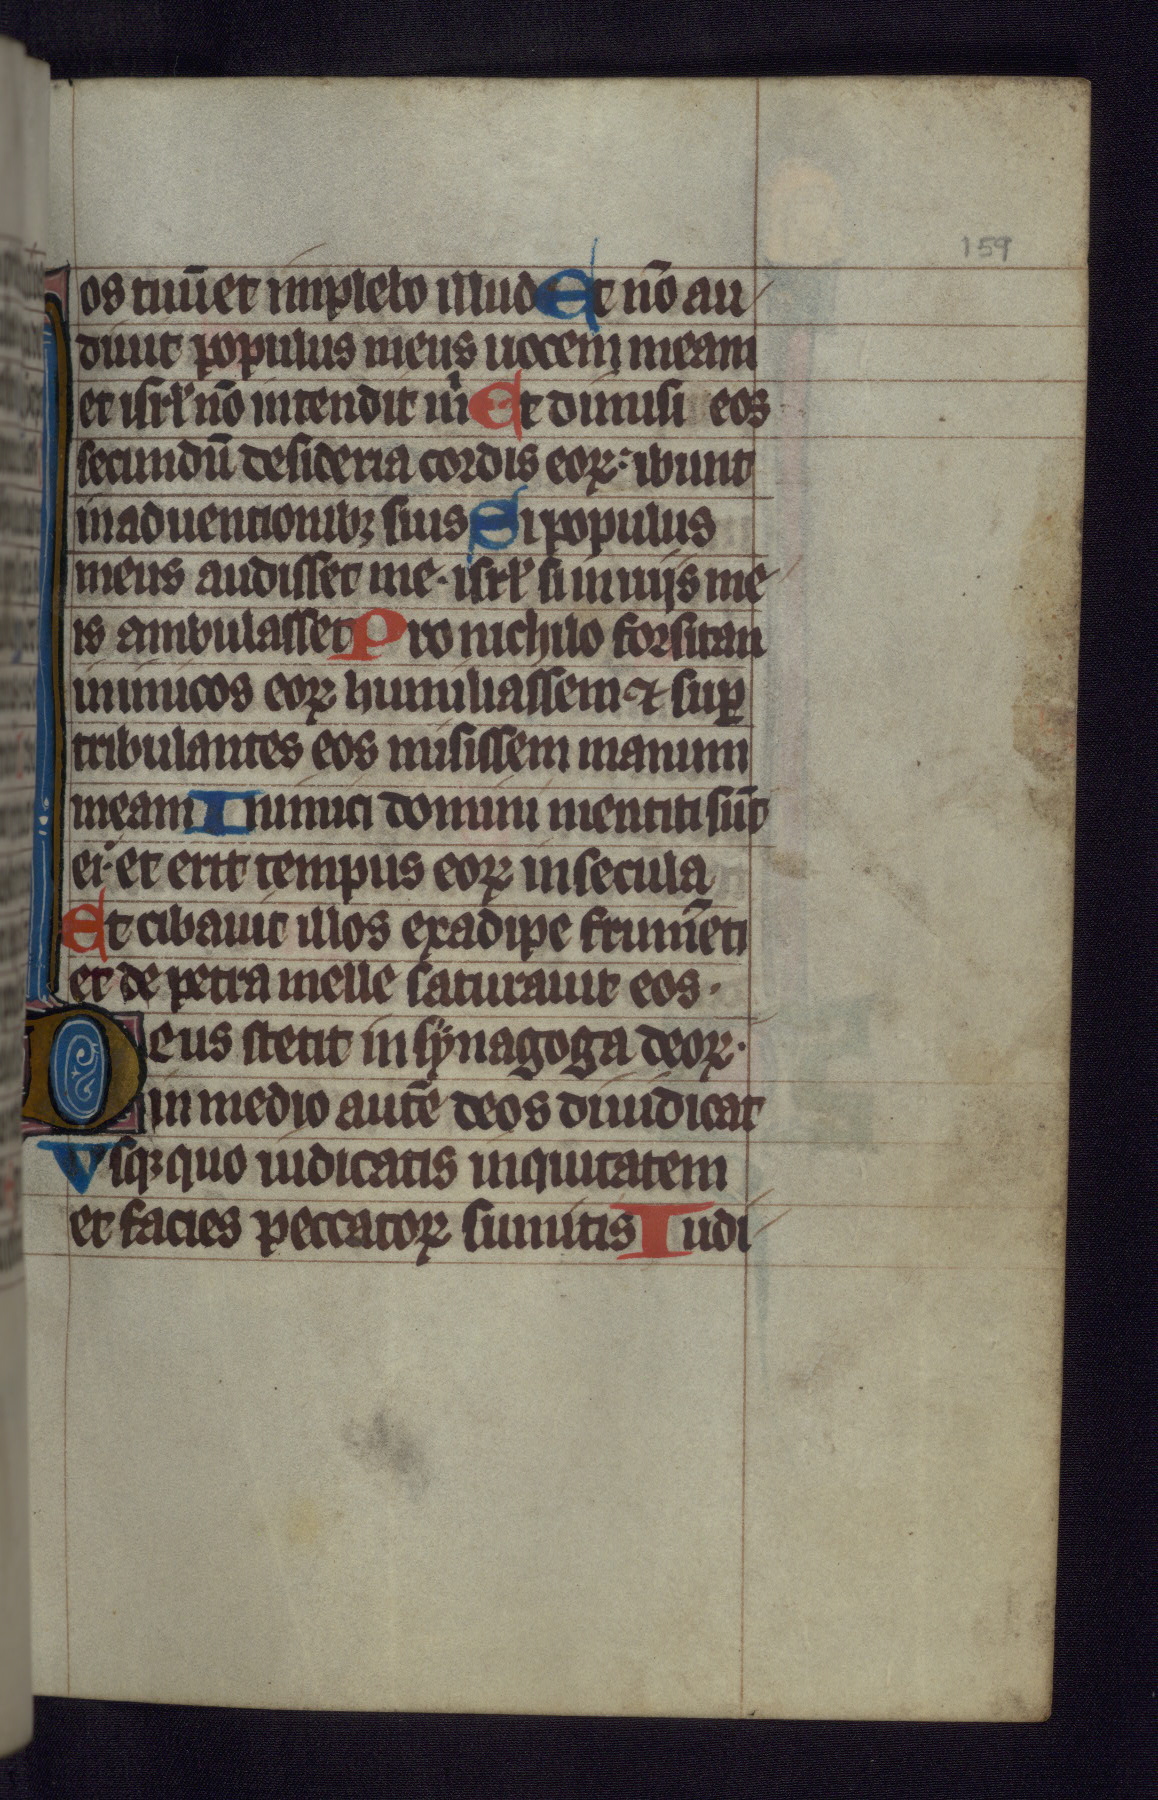 159
os tuū et impleto illud Et nō au
diuit populus meus uocem meam
et isrł nō intendit m̍ Et dimisi eos
secundū desideria cordis eoꝝ: ibunt
in aduentionibꝫ suis Si populus
meus audisset me· isrł si in uijs me
is ambulasset Pro nichilo forsitan
inimicos eoꝝ humiliassem ⁊ suꝑ
tribulantes eos misissem manum
meam Inimici domini mentiti sūt
ei· et erit tempus eoꝝ in secula
Et cibauit illos ex adipe frum̄eti
et de petra melle saturauit eos·
Deus stetit in synagoga deoꝝ·
in medio autē deos diiudicat
Vsqꝫ quo iudicatis iniquitatem
et facies peccatoꝝ sumitis Iudi